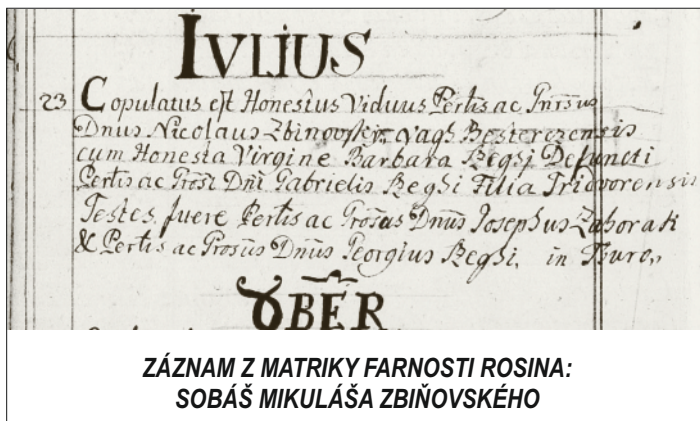 IVLIUS
23 Copulatus est Honestus Viduus Pertis ac
Dnus Nicolaus Zbinovsky Vagh Beszterczensis
cum Honesta Virgine Barbara Reghi Defuncti
Pertis ac Dni Gabrielis Reghi Filia Tridvorensis
Testes fuere Pertis ac Dnus Josephus Zahorak
& Pertis ac Dnus Georgius Reghi, in
BER
ZÁZNAM Z MATRIKY FARNOSTI ROSINA:
SOBÁŠ MIKULÁŠA ZBIŇOVSKÉHO